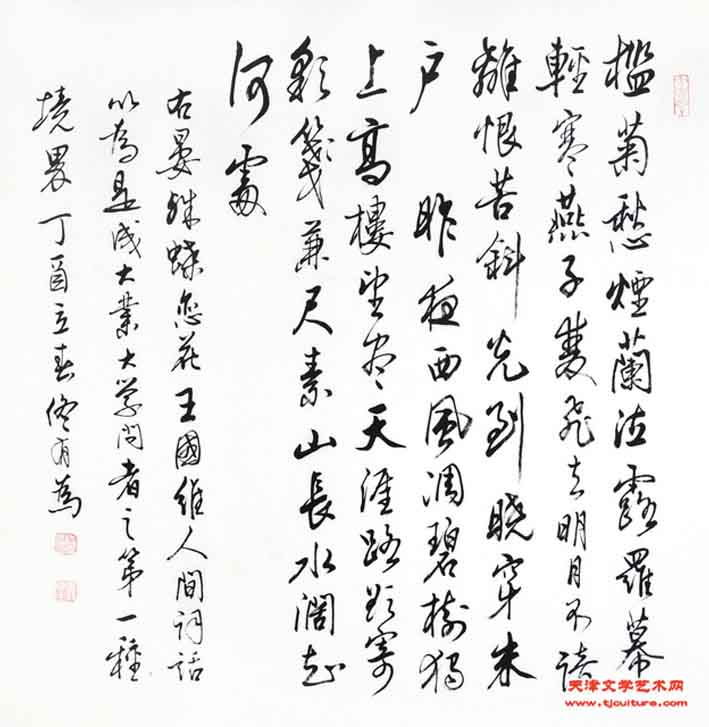 檻菊愁煙蘭泣露羅幕
輕寒燕子雙飛去明月不諳
離恨苦斜光到曉穿朱
户 昨夜西風凋碧樹獨
上高樓望盡天涯路欲寄
彩箋兼尺素山長水闊知
何處
右晏殊蝶恋花王國維人間詞話
以為是成大業大学問者之第一種
境界丁酉立春佟有為
天津文学艺术网
www.tjculture.com